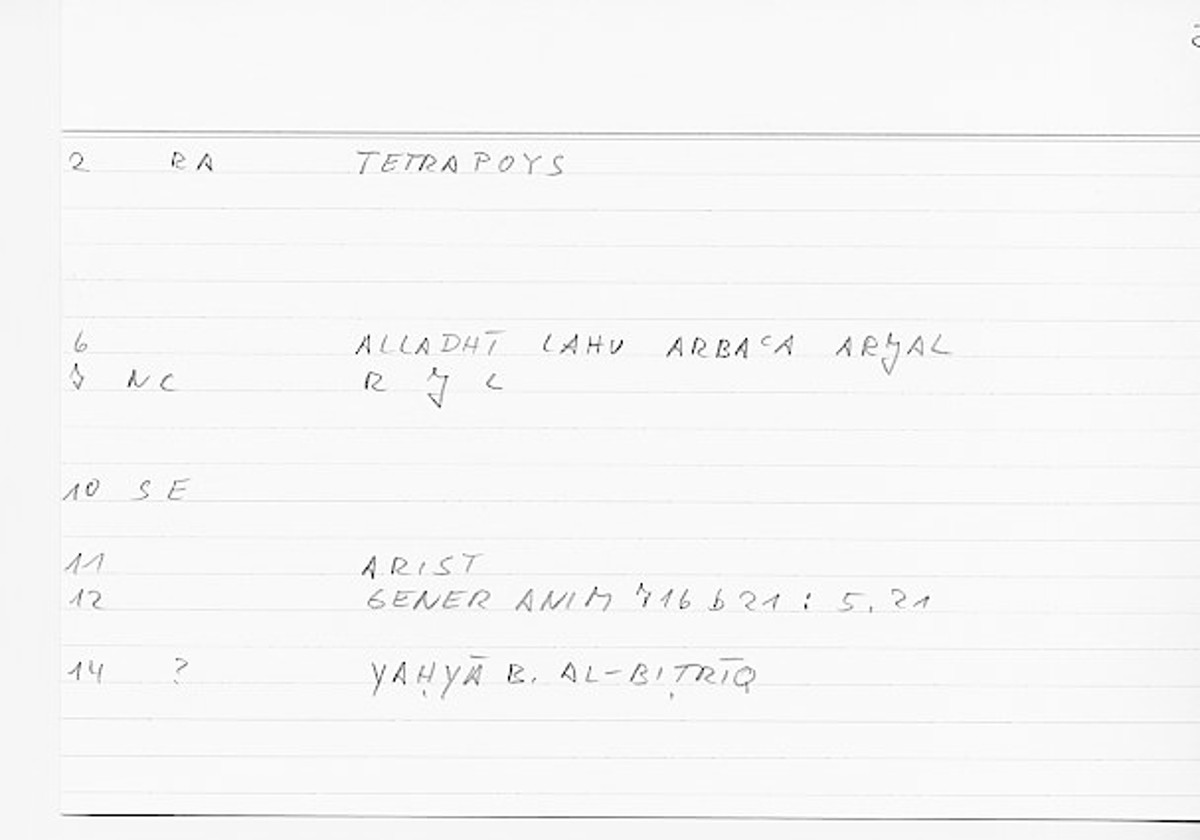 2 RA TETRAPOYS
6 ALLADHĪ LAHU ARBAᶜA ARJAL
7 NC R J L
10 SE
11 ARIST
12 GENER ANIM 716 b 21 : 5.21
14 ? YAḤYĀ B. AL-BIṬRĪQ